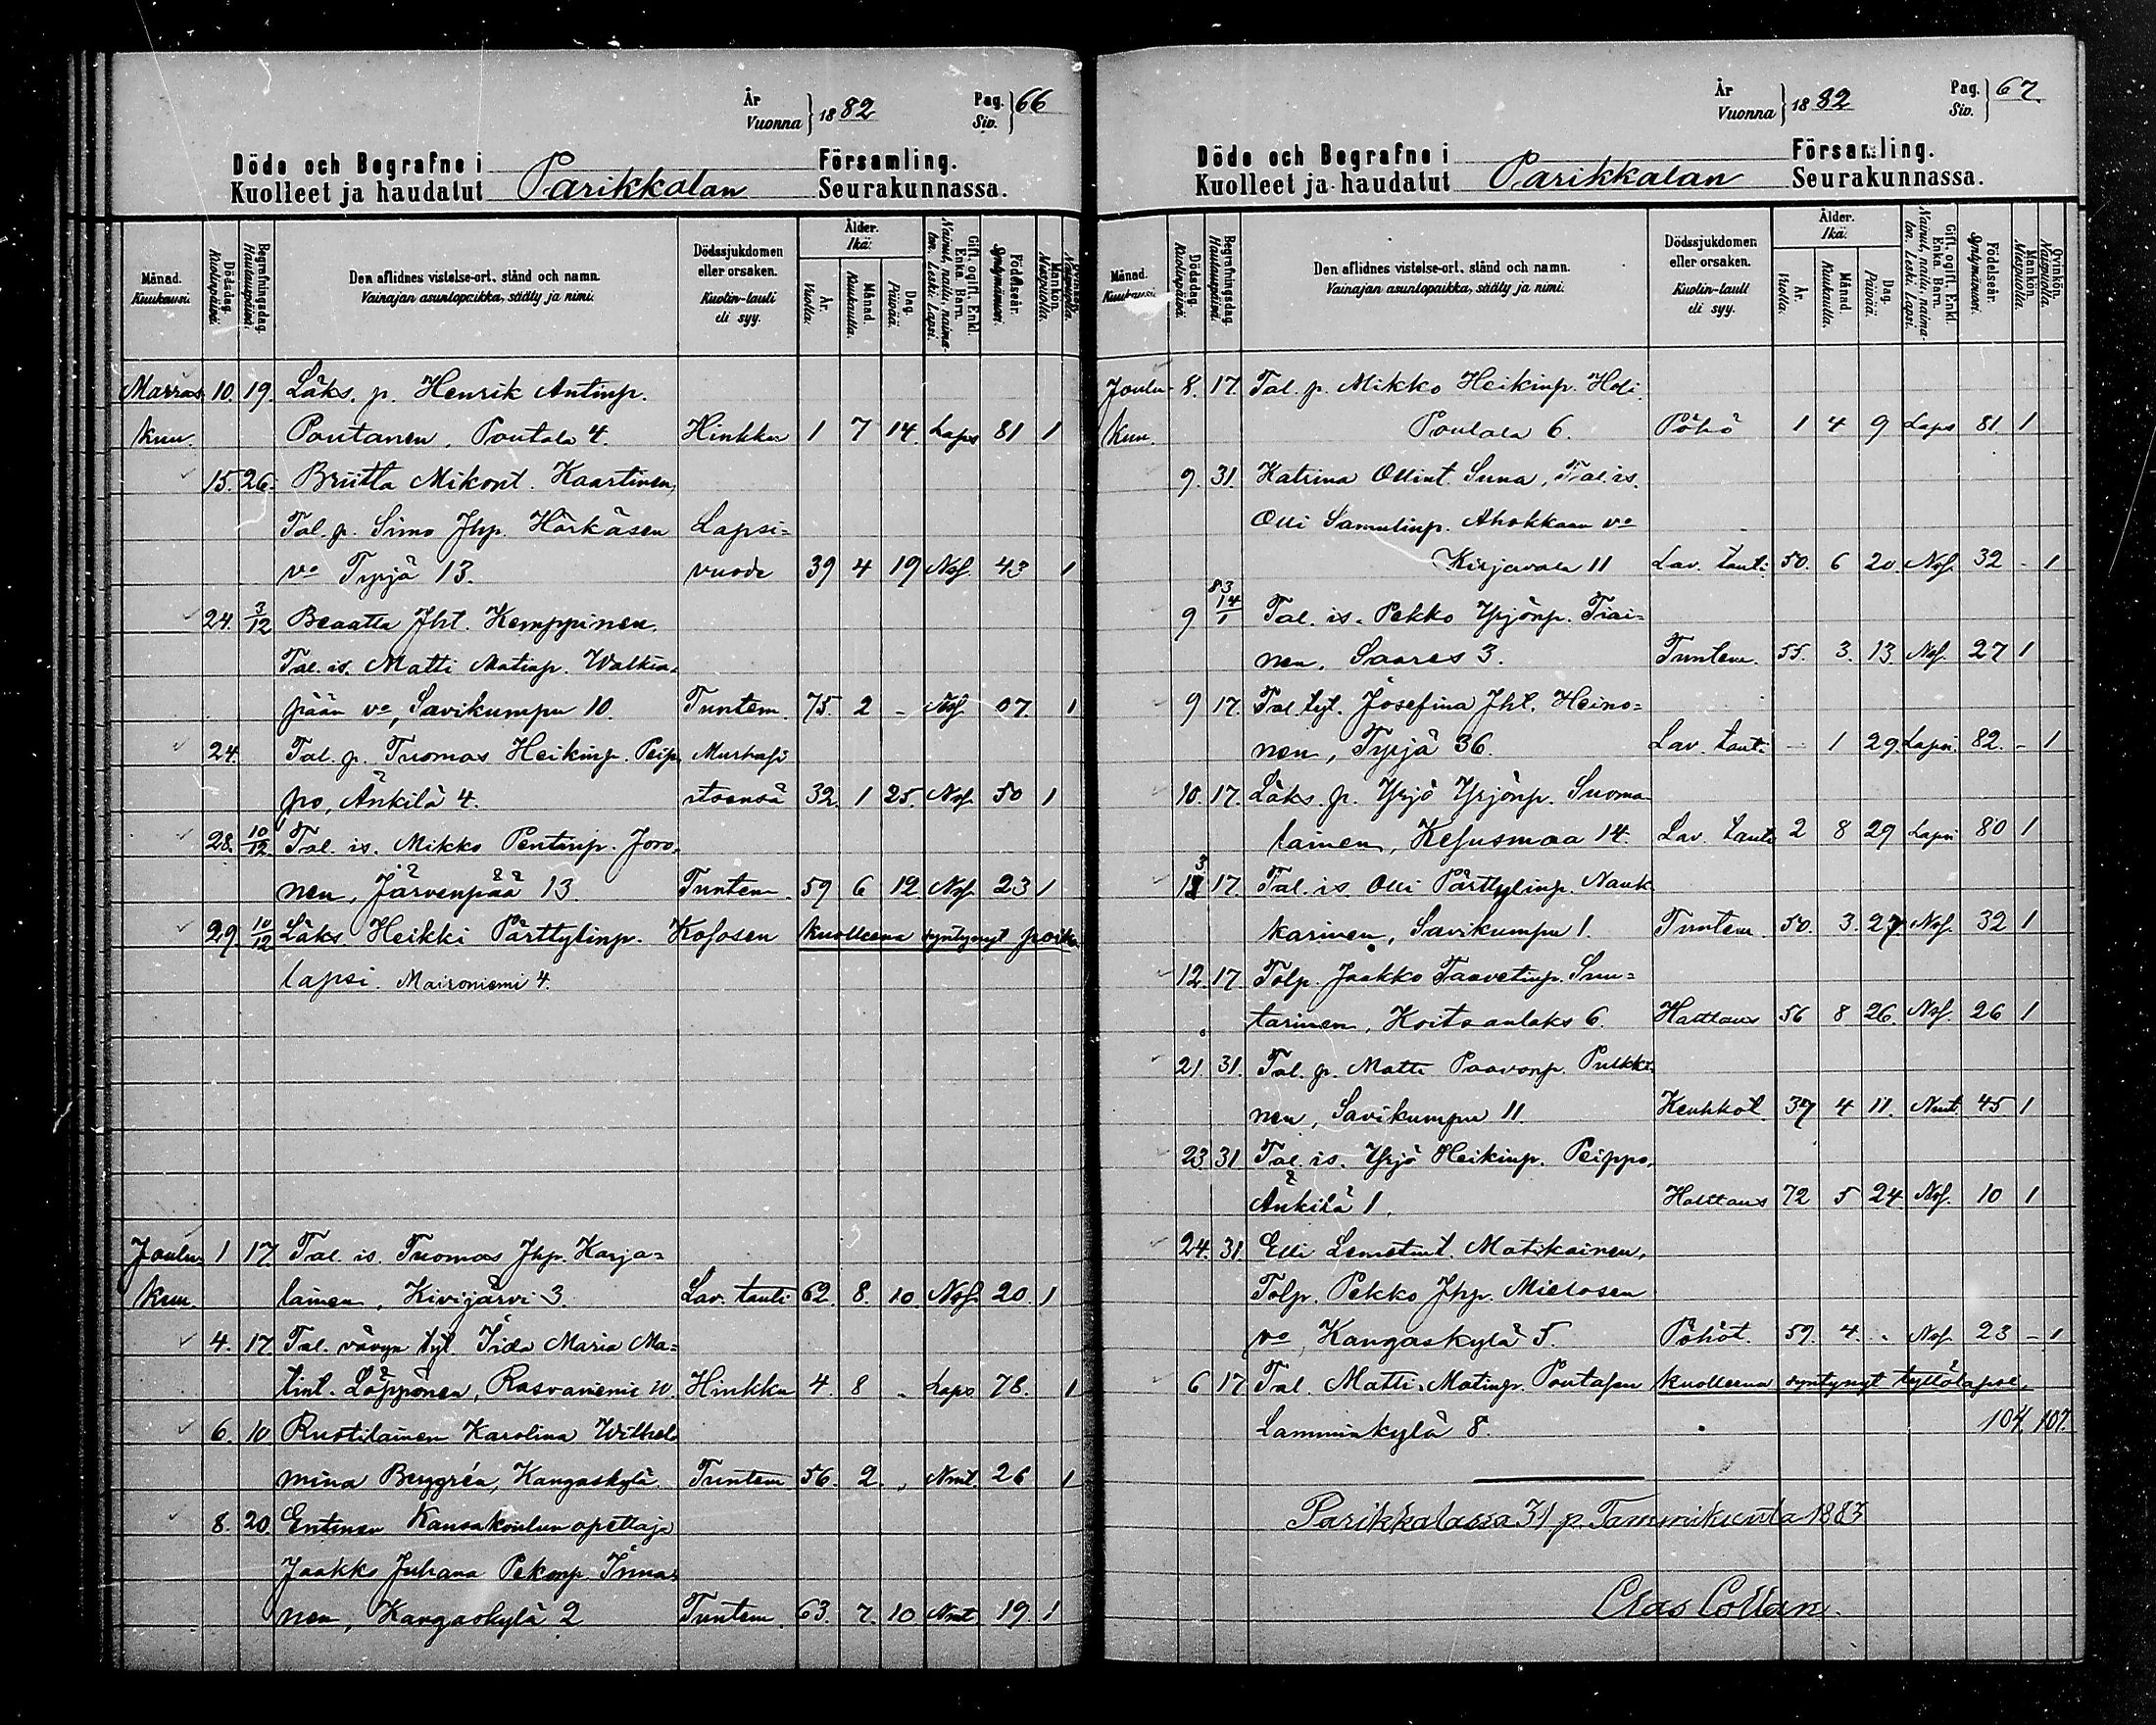 År
Vuonna } 1882
Pag.
Siv. } 66
Döde och Begrafne i Församling.
Kuolleet ja haudatut Parikkalan Seurakunnassa.
Månad. Kuukausi.
Dödsdag. Kuolinpäivä.
Begrafningsdag. Hautauspäivä.
Den aflidnes vistelse-ort, stånd och namn.
Vainajan asuntopaikka, sääty ja nimi.
Dödssjukdomen eller orsaken.
Kuolin-tauti eli syy.
Ålder. Ikä:
År. Vuotta.
Månad. Kuukautta.
Dag. Päivää.
Gift, ogift. Enkl. Enka. Barn.
Nainut, naitu, naimaton. Leski. Lapsi.
Födelseår. Syntymävuosi.
Mankön. Miespuolia.
Qvinkön. Naispuolia.
Marras 10. 19. Läks. p. Henrik Antinp.
kuu. Poutanen, Poutala 4. Hinkku 1 7 14. Laps 81 1
15. 26. Briitta Mikont. Kaartinen,
Tal. p. Simo Jhp. Härkäsen Lapsi=
vo Tyrjä 13. vuode 39 4 19 Naj. 43 1
24. 3/12 Beaatta Jht. Kemppinen.
Tal. is. Matti Matinp. Walkia=
pään vo, Savikumpu 10. Tuntem. 75. 2 - Naj. 07. 1
24. Tal. p. Tuomas Heikinp. Peip=
po, Änkilä 4. itsensä 32 1 25. Naj. 50 1
28. 10/12 Tal. is. Mikko Pentinp. Joro=
nen, Järvenpää 13. Tuntem. 59 6 12. Naj. 23 1
29 10/12 Läks. Heikki Pärttylinp. Kososen kuolleena syntynyt poika
lapsi. Maironiemi 4.
Joulu= 1 17. Tal. is. Tuomas Jhp. Karja=
kuu. lainen, Kivijärvi 3. Lav. tauti 62. 8. 10. Naj. 20. 1
4. 17. Tal. vävyn tyt. Iida Maria Ma=
tint. Löppönen, Rasvaniemi 10. Hinkku 4. 8 „ Laps 78. 1
6. 10 Ruotilainen Karolina Wilhel=
mina Berggrén, Kangaskylä Tuntem 56. 2. „ Nmt. 26 1
8. 20. Entinen Kansakoulun opettaja
Jaakko Juhana Pekonp. Inna=
nen, Kangaskylä 2 Tuntem. 63. 7. 10. Nmt. 19 1
År
Vuonna } 1882
Pag.
Siv. } 67.
Döde och Begrafne i Församling.
Kuolleet ja haudatut Parikkalan Seurakunnassa.
Månad. Kuukausi.
Dödsdag. Kuolinpäivä.
Begrafningsdag. Hautauspäivä.
Den aflidnes vistelse-ort, stånd och namn.
Vainajan asuntopaikka, sääty ja nimi.
Dödssjukdomen eller orsaken.
Kuolin-tauti eli syy.
Ålder. Ikä:
År. Vuotta.
Månad. Kuukautta.
Dag. Päivää.
Gift, ogift. Enkl. Enka. Barn.
Nainut, naitu, naimaton. Leski. Lapsi.
Födelseår. Syntymävuosi.
Mankön. Miespuolia.
Qvinkön. Naispuolia.
Joulu- 8. 17. Tal. p. Mikko Heikinp.
kuu. Poutala 6. Pöhö 1 4 9 Laps 81 1
9. 31. Katrina Ollint. Suna, Tal. is.
Olli Samulinp. Ahokkaan vo
Kirjavala 11 Lav. tauti 50. 6 20. Naj. 32 - 1
83
9 14/1 Tal. is. Pekko Yrjönp. Tiai=
nen, Saares 3. Tuntem. 55. 3. 13. Naj. 27 1
9 17. Tal. tyt. Josefina Jht. Heino=
nen, Tyrjä 36. Lav. tauti - 1 29. Lapsi. 82. - 1
10. 17. Läks. p. Yrjö Yrjönp. Suoma=
lainen, Kesusmaa 14. Lav. tauti 2 8 29 Lapsi 80 1
13 17. Tal. is. Olli Pärttylinp. Nauk=
karinen, Savikumpu 1. Tuntem. 50. 3. 27. Naj. 32 1
12. 17 Tolp. Jaakko Taavetinp. Suu=
tarinen, Koitsanlaks 6. Halttaus 56 8 26. Naj. 26 1
21. 31. Tal. p. Matti Paavonp. Pulkki=
nen, Savikumpu 11. Keuhkot. 37 4 11. Nmt. 45 1
23 31 Tal. is. Yrjö Heikinp. Peippo,
Änkilä 1. Halttaus 72 5 24. Naj. 10 1
24. 31. Elli Lemetint. Matikainen,
Tolp. Pekko Jhp. Mielosen
vo, Kangaskylä 5. Pöhöt. 59. 4. „ Naj. 23 - 1
6 17 Tal. Matti Matinp. Poutasen kuolleena syntynyt tyttölapsi.
Lamminkylä 8. 104. 107.
Parikkalassa 31 p. Tammikuuta 1883
Clas Collan.